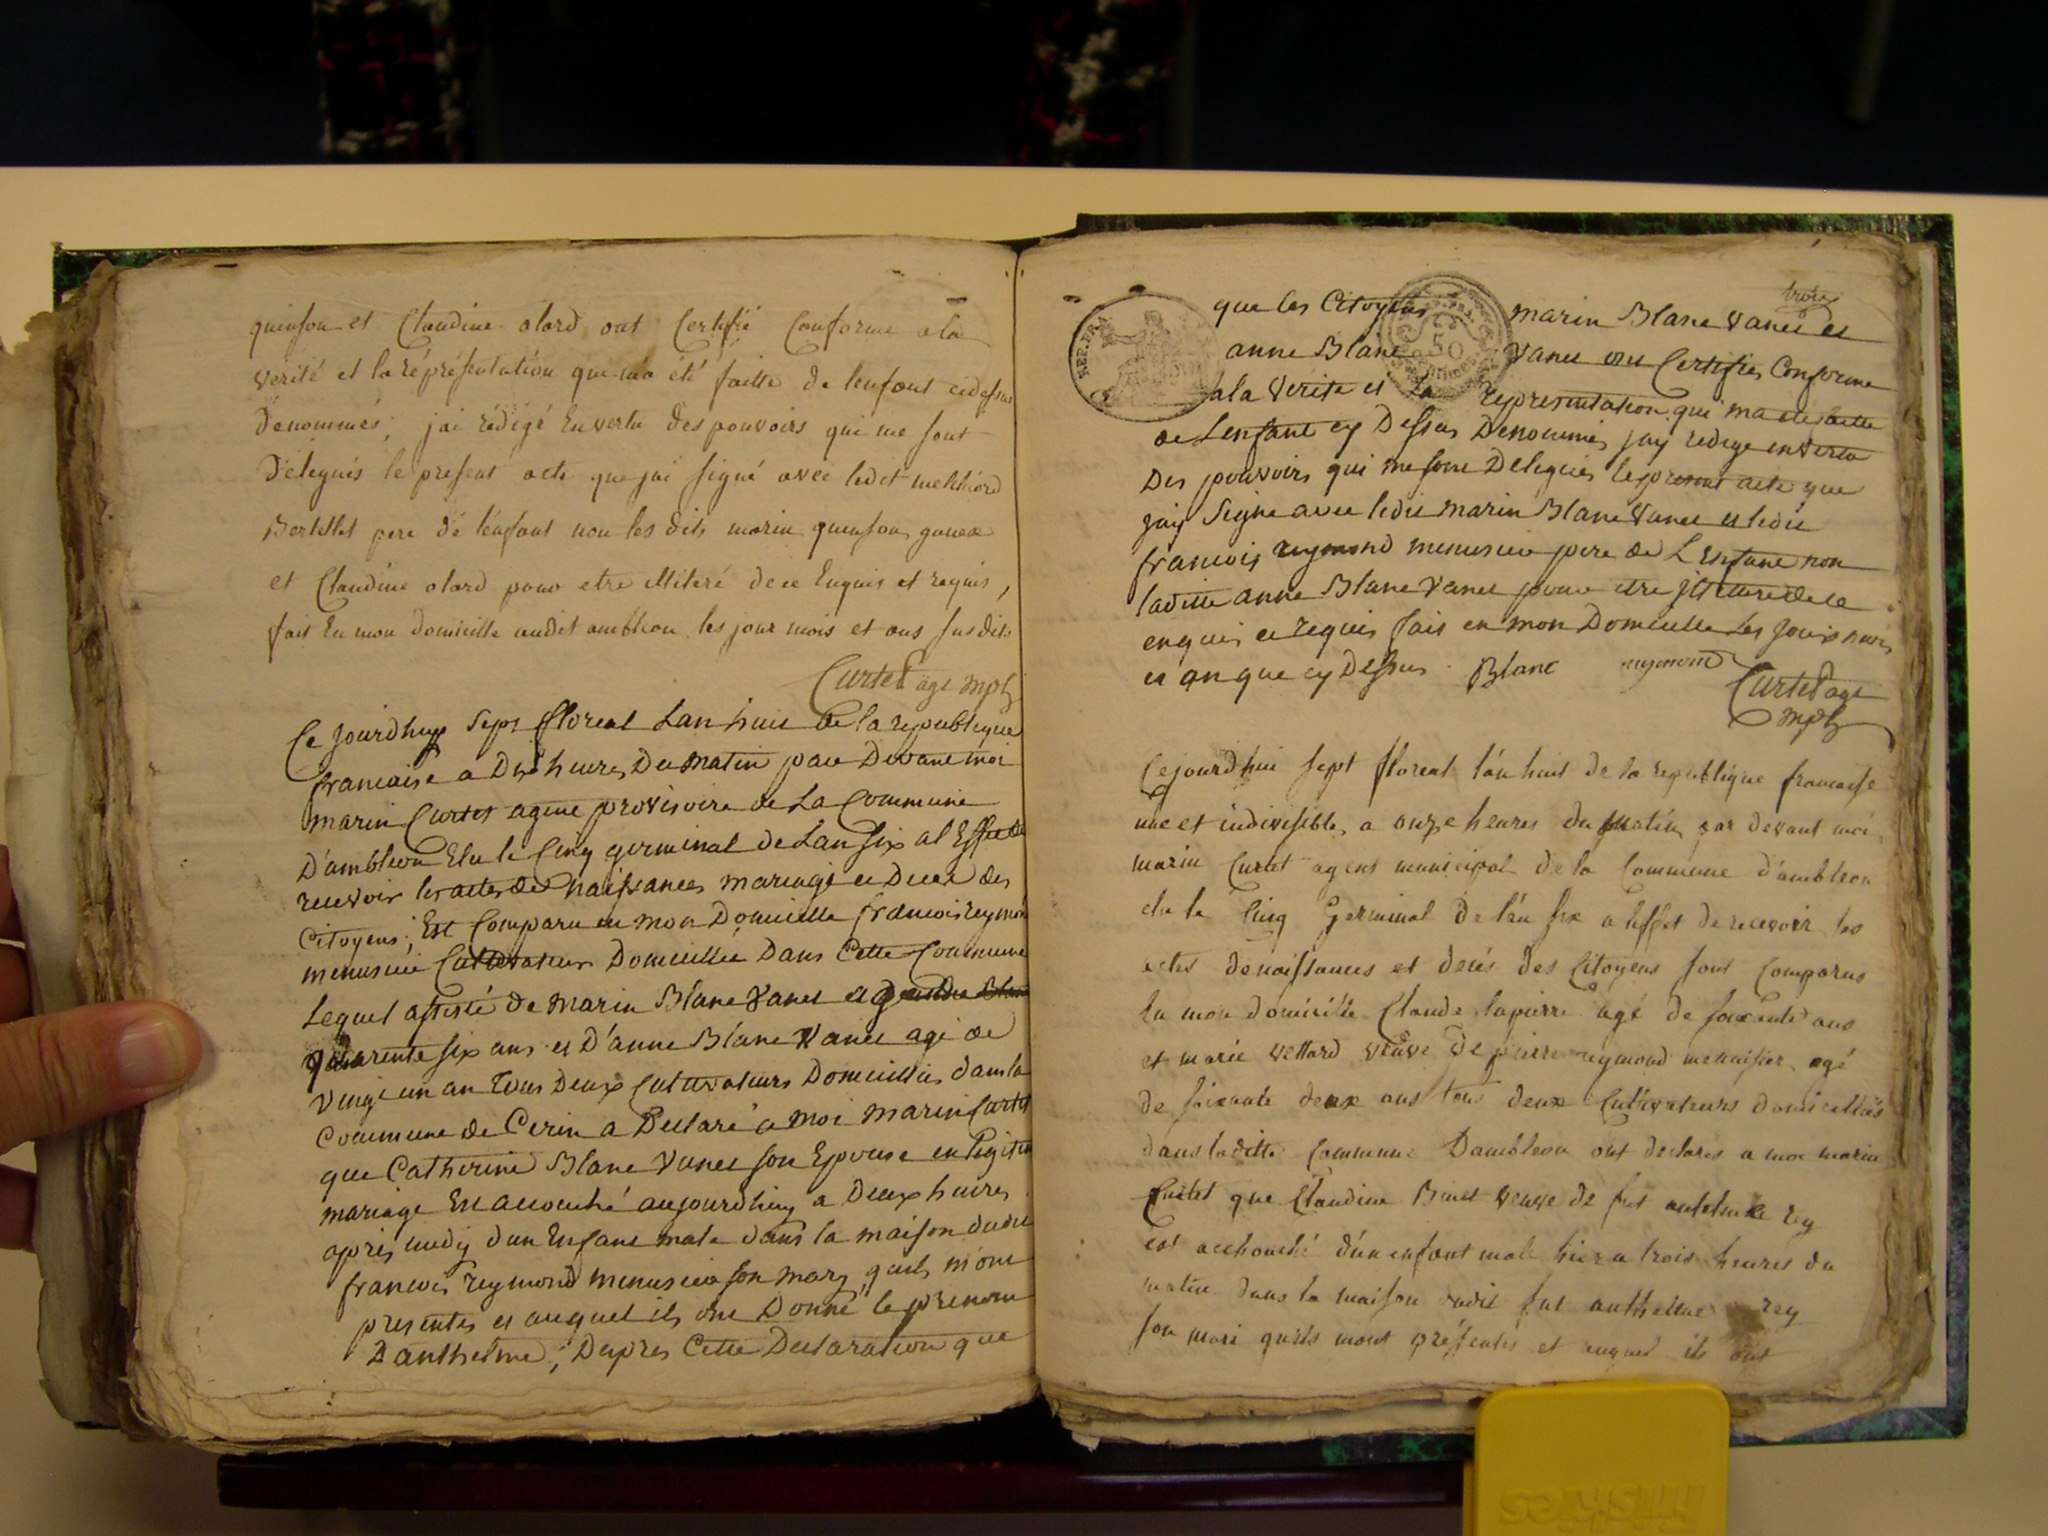 quinson et Claudine olard ont Certifié Conforme a la
verité et la réprésentation qui m'a été faitte de lenfant cidessus
dénommés, jai rédigé En vertu des pouvoirs qui me sont
Délegués le present acte que jai signé avec ledit melchiord
Bertellet pere de l'enfant non les dits marin quinson
et Claudine olard pour etre illiteré de ce Enquis et requis,
fait En mon domicille audit ambleon les jour mois et ans susdits
Curtet age mpl
Ce jourdhuy sept floreal Lan huit de la republique
francaise a Dix heures Du matin par Devant moi
marin Curtet agent provisoire de La Commune
D'ambleon Elu le Cinq germinal de Lan Six al Effet de
recevoir les actes de Naissances mariage et Deces des
Citoyens; Est Comparu en mon Domicille francois reymond
menusier Cultivateur Domicillié Dans Cette Commune
Lequel assisté de marin Blanc Vanet agé
quarente six ans et D'anne Blanc Vanet agé de
Vingt un an Tous Deux Cultivateurs Domicilliés dans la
Commune de Cerin a Declaré a moi marin Curtet
que Catherine Blanc Vanet son Epouse en Legitime
mariage Est accouché aujourdhuy a Deux heures
après midy d'un Enfant male dans la maison dudit
francois reymond menusier son mary quils m'ont
presentés et auquel ils ont Donné le prenom
D'anthelme; Dapres Cette Declaration que
trois
REP. FRA.
50
que les Citoyens marin Blanc Vanet et
anne Blanc Vanet ont Certifiés Conforme
a la Verite et La representation qui ma ete faitte
de Lenfant cy Dessus Denommés jay redigé en vertu
Des pouvoirs qui me sont Delegués le present acte que
jay Signé avec ledit marin Blanc Vanet et ledit
francois reymond menusier pere de L Enfant non
laditte anne Blanc Vanet pour etre de ce
enquis et requis fait en mon Domicille Les jour mois
et an que cy Dessus Blanc reymond
Curtet age
mpl
Cejourdhui sept floreal l'an huit de la republique francaise
une et indivisible, a onze heures du matin par devant moi
marin Curtet agent municipal de la Commune d'ambleon
elu le Cinq Germinal de l'an six a l'effet de recevoir les
actes de naissances et decés des Citoyens sont Comparus
En mon domicille Claude lapierre agé de soixente ans
et marie vettard veuve de pierre reymond menuisier agé
de soixante deux ans tous deux Cultivateurs domicilliés
dans laditte Commune Dambleon ont declarés a moi marin
Curtet que Claudine Binet veuve de fut anthelme rey
est acchouché d'un enfant male hier a trois heures du
matin dans la maison dudit fut anthelme rey
son mari quils mont présentés et auquel ils ont